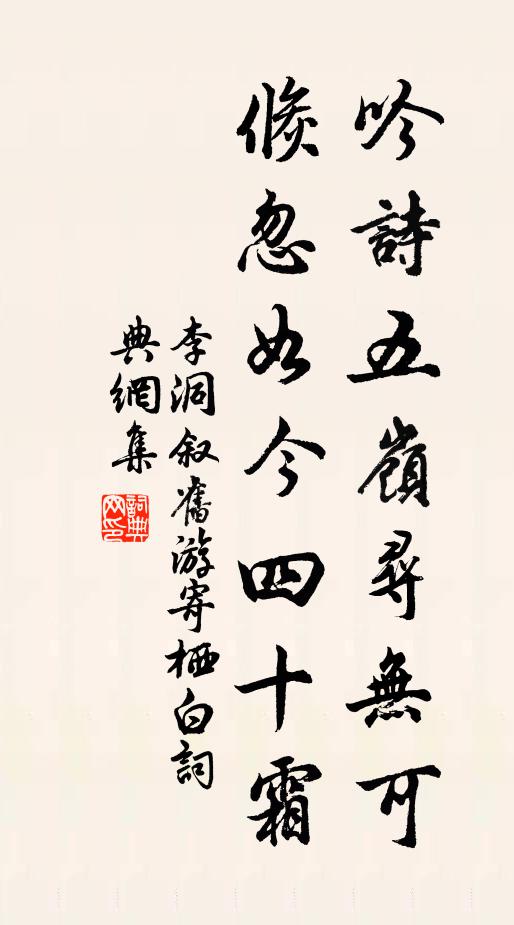 吟詩五嶺尋無可
倏忽如今四十霜
李洞叙舊游寄栖白詞
典網集
詞典網印